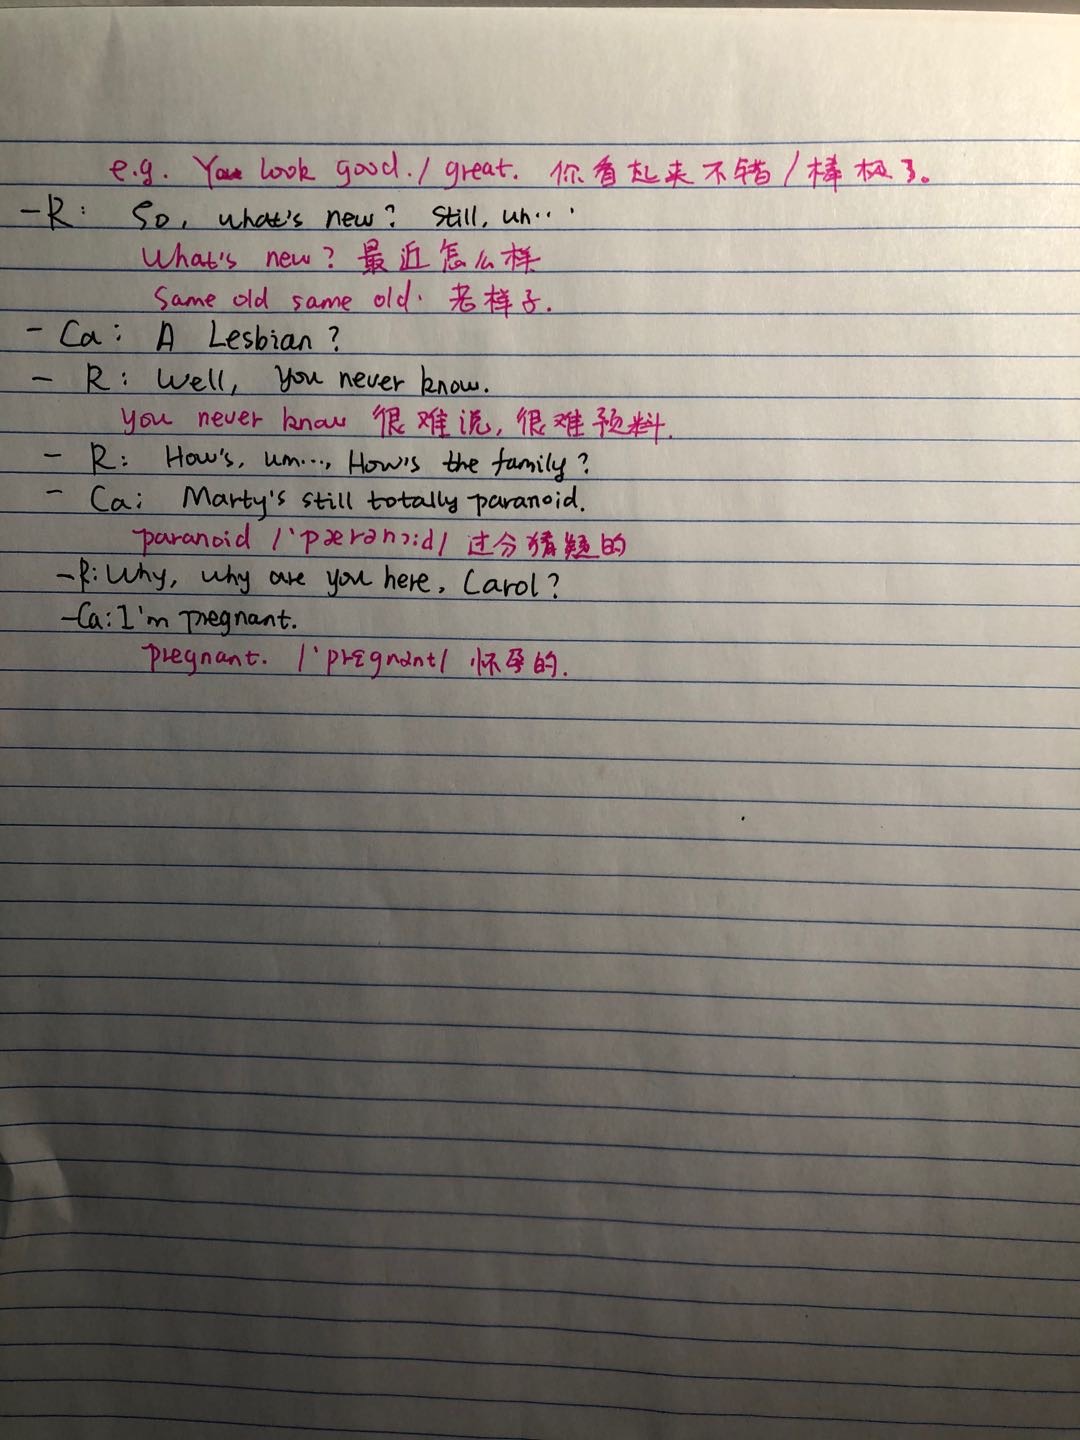 e.g. You look good. / great. 你看起来不错 / 棒极了。
-R: So, what's new? Still, uh...
What's new? 最近怎么样
Same old same old. 老样子.
- Ca: A Lesbian?
- R: Well, you never know.
you never know 很难说, 很难预料.
- R: How's, um..., How's the family?
- Ca: Marty's still totally paranoid.
paranoid /ˈpærənɔːd/ 过分猜疑的
-R: Why, why are you here, Carol?
-Ca: I'm pregnant.
pregnant. /ˈprɛgnənt/ 怀孕的.